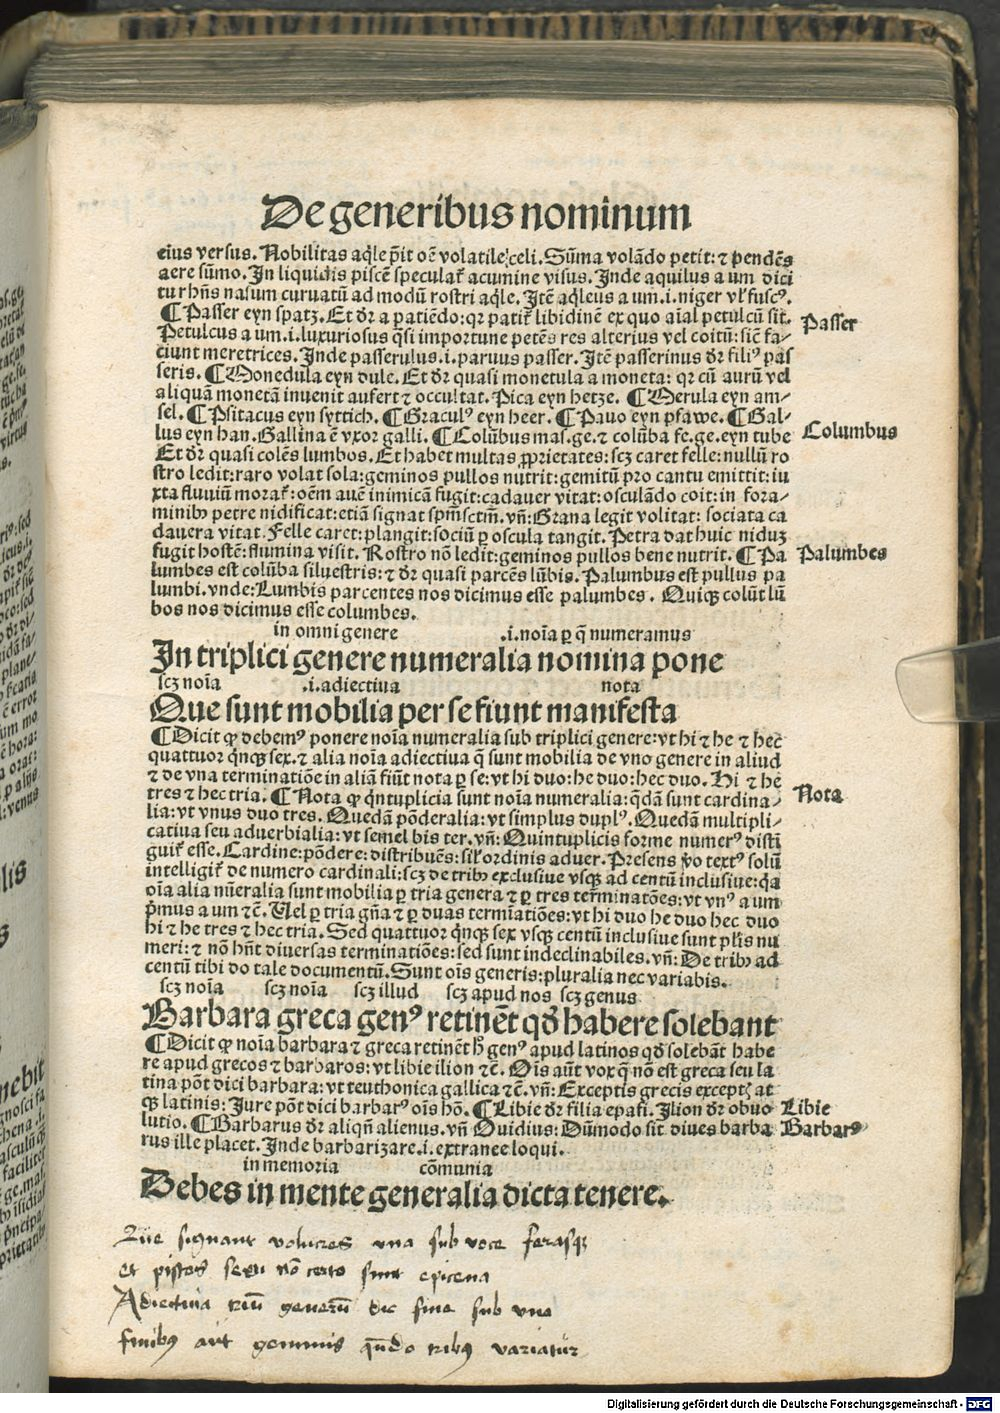 De generibus nominum
eius versus. Nobilitas aq̃le p̃it oẽ volatile celi. Sũma volãdo petit: ⁊ pendẽs
aere sũmo. In liquidis piscẽ speculat̃ acumine visus. Inde aquilus a um dici
tur hñs nasum curuatũ ad modũ rostri aq̃le. Itẽ aq̃leus a um .i. niger vl' fuscꝰ.
¶ Passer eyn spatz. Et dr̃ a patiẽdo: qꝛ patit̃ libidinẽ ex quo aĩal petulcũ sit.
Passer
Petulcus a um .i. luxuriosus q̃si importune petẽs res alterius vel coitũ: sic̃ fa⸗
ciunt meretrices. Inde passerulus .i. paruus passer. Itẽ passerinus dr̃ filiꝰ pas
seris. ¶ Monedula eyn dule. Et dr̃ quasi monetula a moneta: qꝛ cũ aurũ vel
aliquã monetã inuenit aufert ⁊ occultat. Pica eyn hetze. ¶ Merula eyn am⸗
sel. ¶ Psitacus eyn syttich. ¶ Graculꝰ eyn heer. ¶ Pauo eyn pfawe. ¶ Gal⸗
lus eyn han. Gallina ẽ vxor galli. ¶ Colũbus mas. ge. ⁊ colũba fe. ge. eyn tube
Columbus
Et dr̃ quasi colẽs lumbos. Et habet multas ꝓprietates: scꝫ caret felle: nullũ ro
stro ledit: raro volat sola: geminos pullos nutrit: gemitũ pro cantu emittit: iu
xta fluuiũ morat̃: oẽm auẽ inimicã fugit: cadauer vitat: osculãdo coit: in fora⸗
minibꝫ petre nidificat: etiã signat sp̃m sctm̃. vñ: Grana legit volitat: sociata ca
dauera vitat. Felle caret: plangit: sociũ ꝑ oscula tangit. Petra dat huic niduꝫ
fugit hostẽ: flumina visit. Rostro nõ ledit: geminos pullos bene nutrit. ¶ Pa
Palumbes
lumbes est colũba siluestris: ⁊ dr̃ quasi parcẽs lũbis. Palumbus est pullus pa
lumbi. vnde: Lumbis parcentes nos dicimus esse palumbes. Quiqꝫ colũt lũ
bos nos dicimus esse columbes.
in omni genere .i. noĩa ꝑ q̃ numeramus
In triplici genere numeralia nomina pone
scꝫ noĩa .i. adiectiua nota
Que sunt mobilia per se fiunt manifesta
¶ Dicit ꝙ debemꝰ ponere noĩa numeralia sub triplici genere: vt hi ⁊ he ⁊ hec
quattuor q̃nqꝫ sex. ⁊ alia noĩa adiectiua q̃ sunt mobilia de vno genere in aliud
⁊ de vna terminatiõe in aliã fiũt nota ꝑ se: vt hi duo: he duo: hec duo. Hi ⁊ he
tres ⁊ hec tria. ¶ Nota ꝙ q̃ntuplicia sunt noĩa numeralia: q̃dã sunt cardina⸗
Nota
lia: vt vnus duo tres. Quedã põderalia: vt simplus duplꝰ. Quedã multipli⸗
catiua seu aduerbialia: vt semel bis ter. vñ: Quintuplicis forme numerꝰ disti
guit̃ esse. Cardine: põdere: distribuẽs: sil' ordinis aduer. Presens ṽo textꝰ solũ
intelligit̃ de numero cardinali: scꝫ de tribꝫ exclusiue vsqꝫ ad centũ inclusiue: q̃a
oĩa alia nũeralia sunt mobilia ꝑ tria genera ⁊ ꝑ tres terminatões: vt vnꝰ a um
p̃mus a um ⁊c̃. Vel ꝑ tria gña ⁊ ꝑ duas termĩatiões: vt hi duo he duo hec duo
hi ⁊ he tres ⁊ hec tria. Sed quattuor q̃nqꝫ sex vsqꝫ centũ inclusiue sunt pl'is nu
meri: ⁊ nõ hñt diuersas terminatiões: sed sunt indeclinabiles. vñ: De tribꝫ ad
centũ tibi do tale documentũ. Sunt oĩs generis: pluralia nec variabis.
scꝫ noĩa scꝫ noĩa scꝫ illud scꝫ apud nos scꝫ genus
Barbara greca genꝰ retinẽt qd̃ habere solebant
¶ Dicit ꝙ noĩa barbara ⁊ greca retinẽt h̃ genꝰ apud latinos qd̃ solebãt habe
re apud grecos ⁊ barbaros: vt libie ilion ⁊c̃. Oĩs aũt vox q̃ nõ est greca seu la
tina põt dici barbara: vt teuthonica gallica ⁊c̃. vñ: Exceptis grecis exceptꝭ at
qꝫ latinis: Jure põt dici barbarꝰ oĩs hõ. ¶ Libie dr̃ filia epafi. Ilion dr̃ obuo
Libie
lutio. ¶ Barbarus dr̃ aliqñ alienus. vñ Ouidius: Dũmodo sit diues barba
Barbarꝰ
rus ille placet. Inde barbarizare .i. extranee loqui.
in memoria cõmunia
Debes in mente generalia dicta tenere.
Que signant volucres vna sub voce ferasqꝫ
et pisces sexu nõ certo sunt epicena
Adiectiua triũ generũ dic fine sub vno
finibꝰ aut geminis qñdo tribꝰ variatur